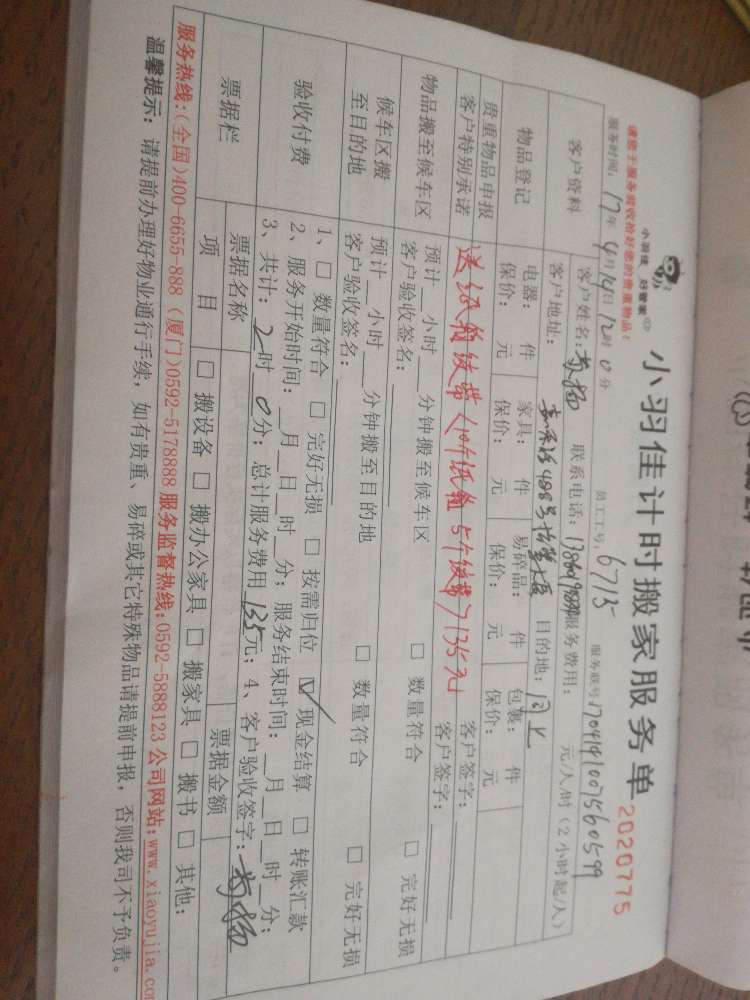 请您于服务前收拾好您的贵重物品！
小羽佳 好管家
小羽佳计时搬家服务单
2020775
服务时间：17年4月14日12时0分
员工工号：6715
服务联号
客户资料
客户姓名：
联系电话：
服务费用： 元/人/时（2小时起/人）
客户地址：
488号
目的地：同上
物品登记
电器： 件 家具： 件 易碎品： 件 包裹： 件
保价： 元 保价： 元 保价： 元 保价： 元
贵重物品申报
客户特别承诺
送纸箱 胶带（10个纸箱 5个胶带）135元
客户签字：
客户签字：
物品搬至候车区
预计__小时__分钟搬至候车区 □ 数量符合 □ 完好无损
客户验收签名：
候车区搬至目的地
预计__小时__分钟搬至目的地 □ 数量符合 □ 完好无损
客户验收签名：
验收付费
1、□ 数量符合 □ 完好无损 □ 按需归位 ☑ 现金结算 □ 转账汇款
2、服务开始时间：__月__日__时__分；服务结束时间：__月__日__时__分；
3、共计：2时0分；总计服务费用135元；4、客户验收签字：
票据栏
票据名称 票据金额
项 目 □ 搬设备 □ 搬办公家具 □ 搬家具 □ 搬书 □ 其他：
服务热线：（全国）400-6655-888（厦门）0592-5178888 服务监督热线：0592-5888123 公司网站：www.xiaoyujia.co
温馨提示：请提前办理好物业通行手续，如有贵重、易碎或其它特殊物品请提前申报，否则我司不予负责。